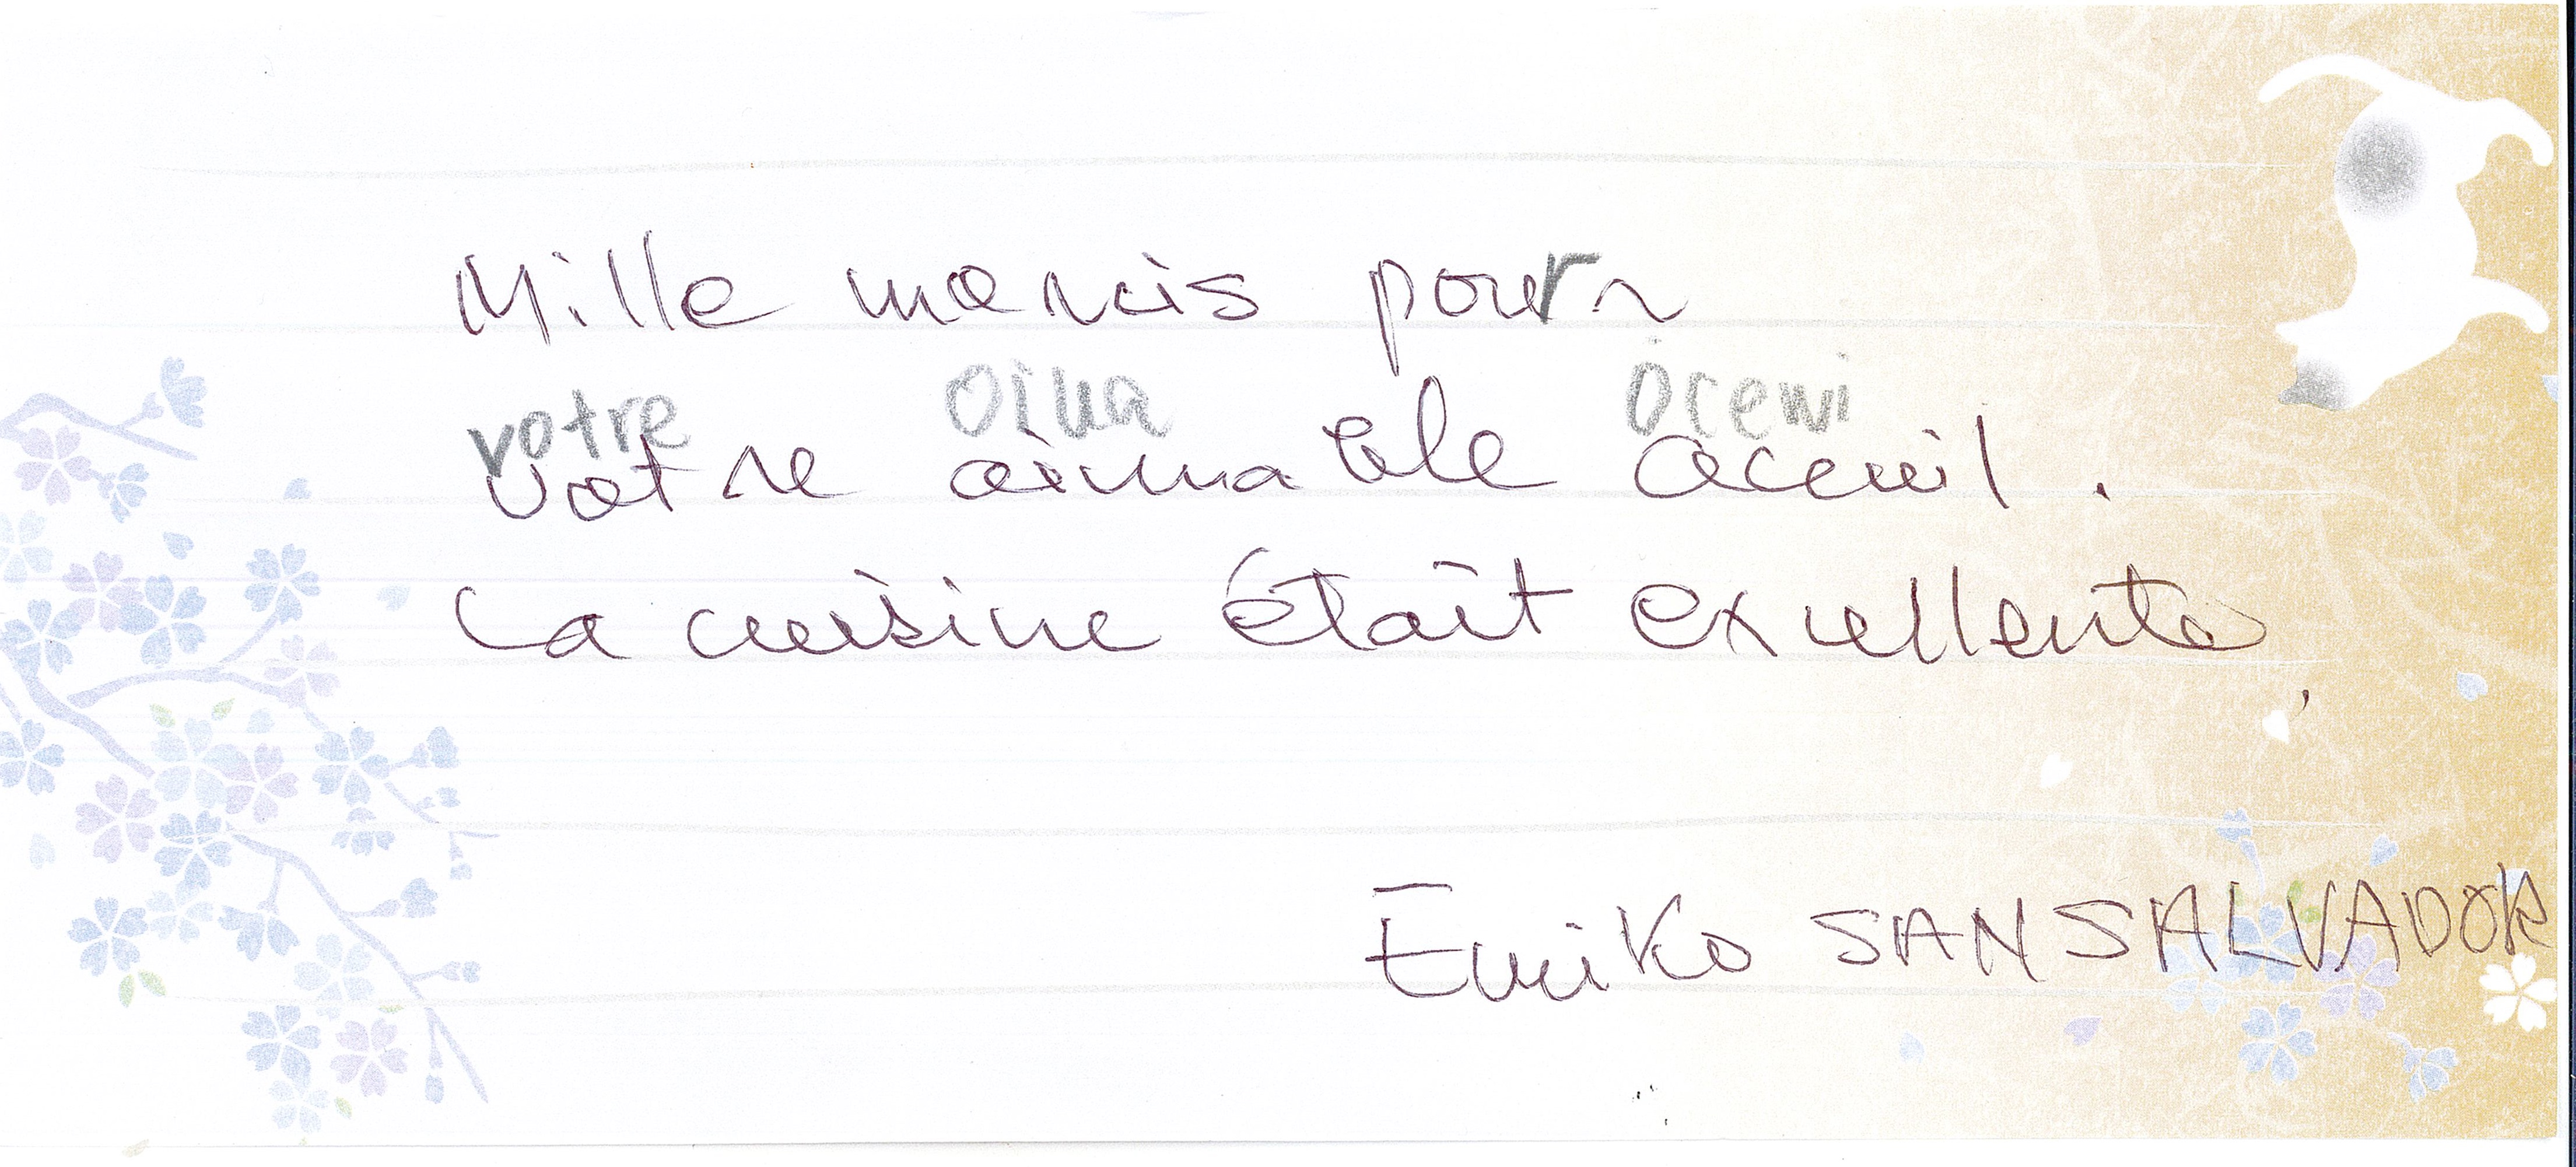 Mille mercis pour
votre oima oceui
votre aimable aceuil.
La cuisine était excellente,
Emiko SAN SALVADOR